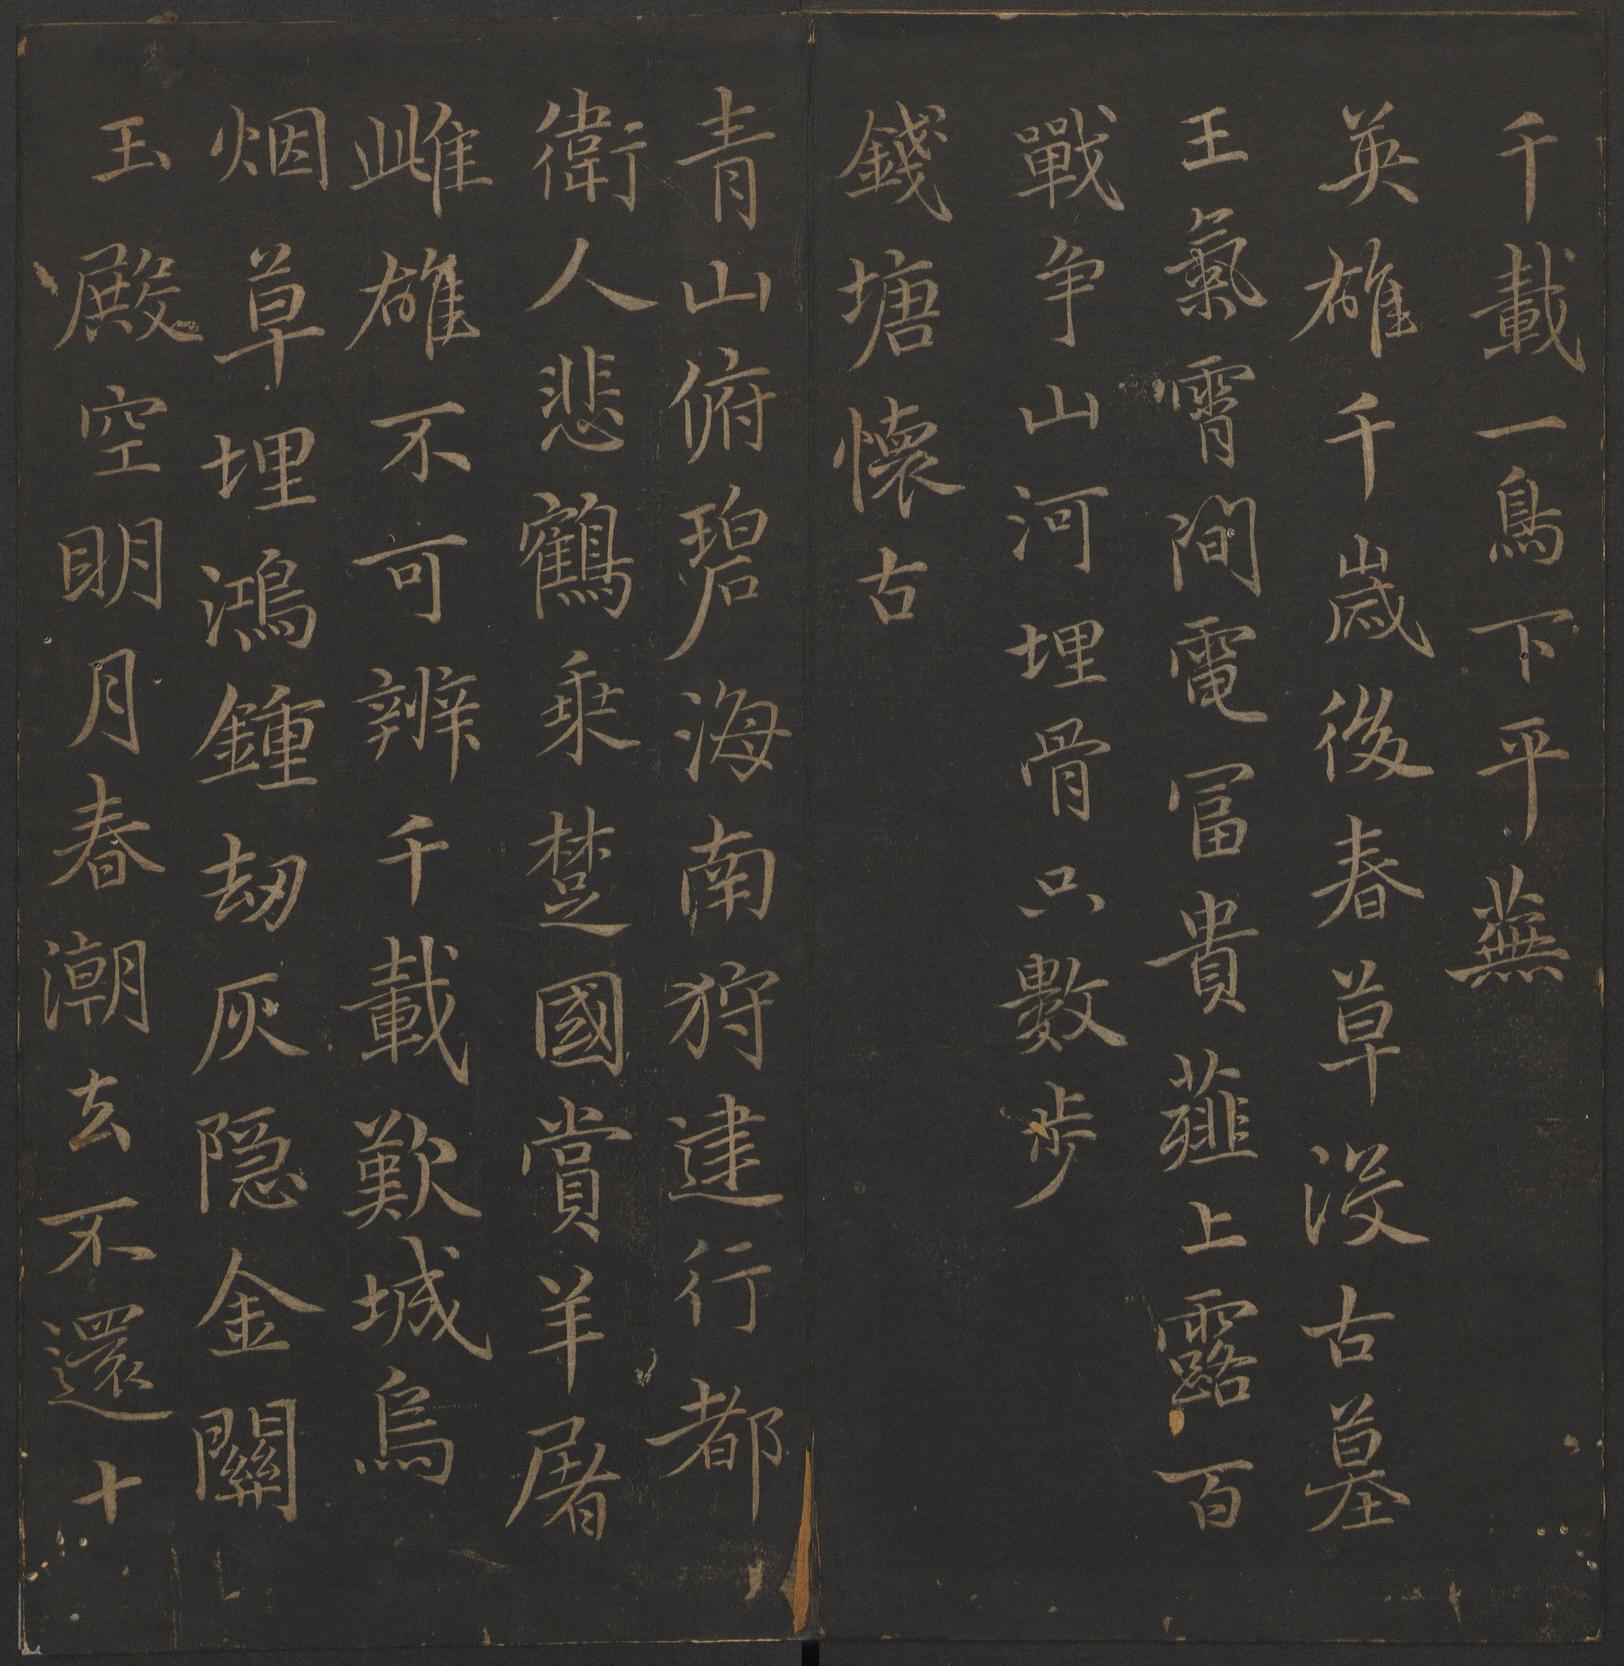 千載一鳥下平蕪
英雄千歲後春草沒古墓
王氣霄間電冨貴薤上露百
戰争山河埋骨只數步
錢塘懷古
青山俯碧海南狩建行都
衛人悲鶴乘楚國賞羊屠
雌雄不可辨千載歎城烏
烟草埋鴻鍾劫灰隠金闗
玉殿空明月春潮去不還十